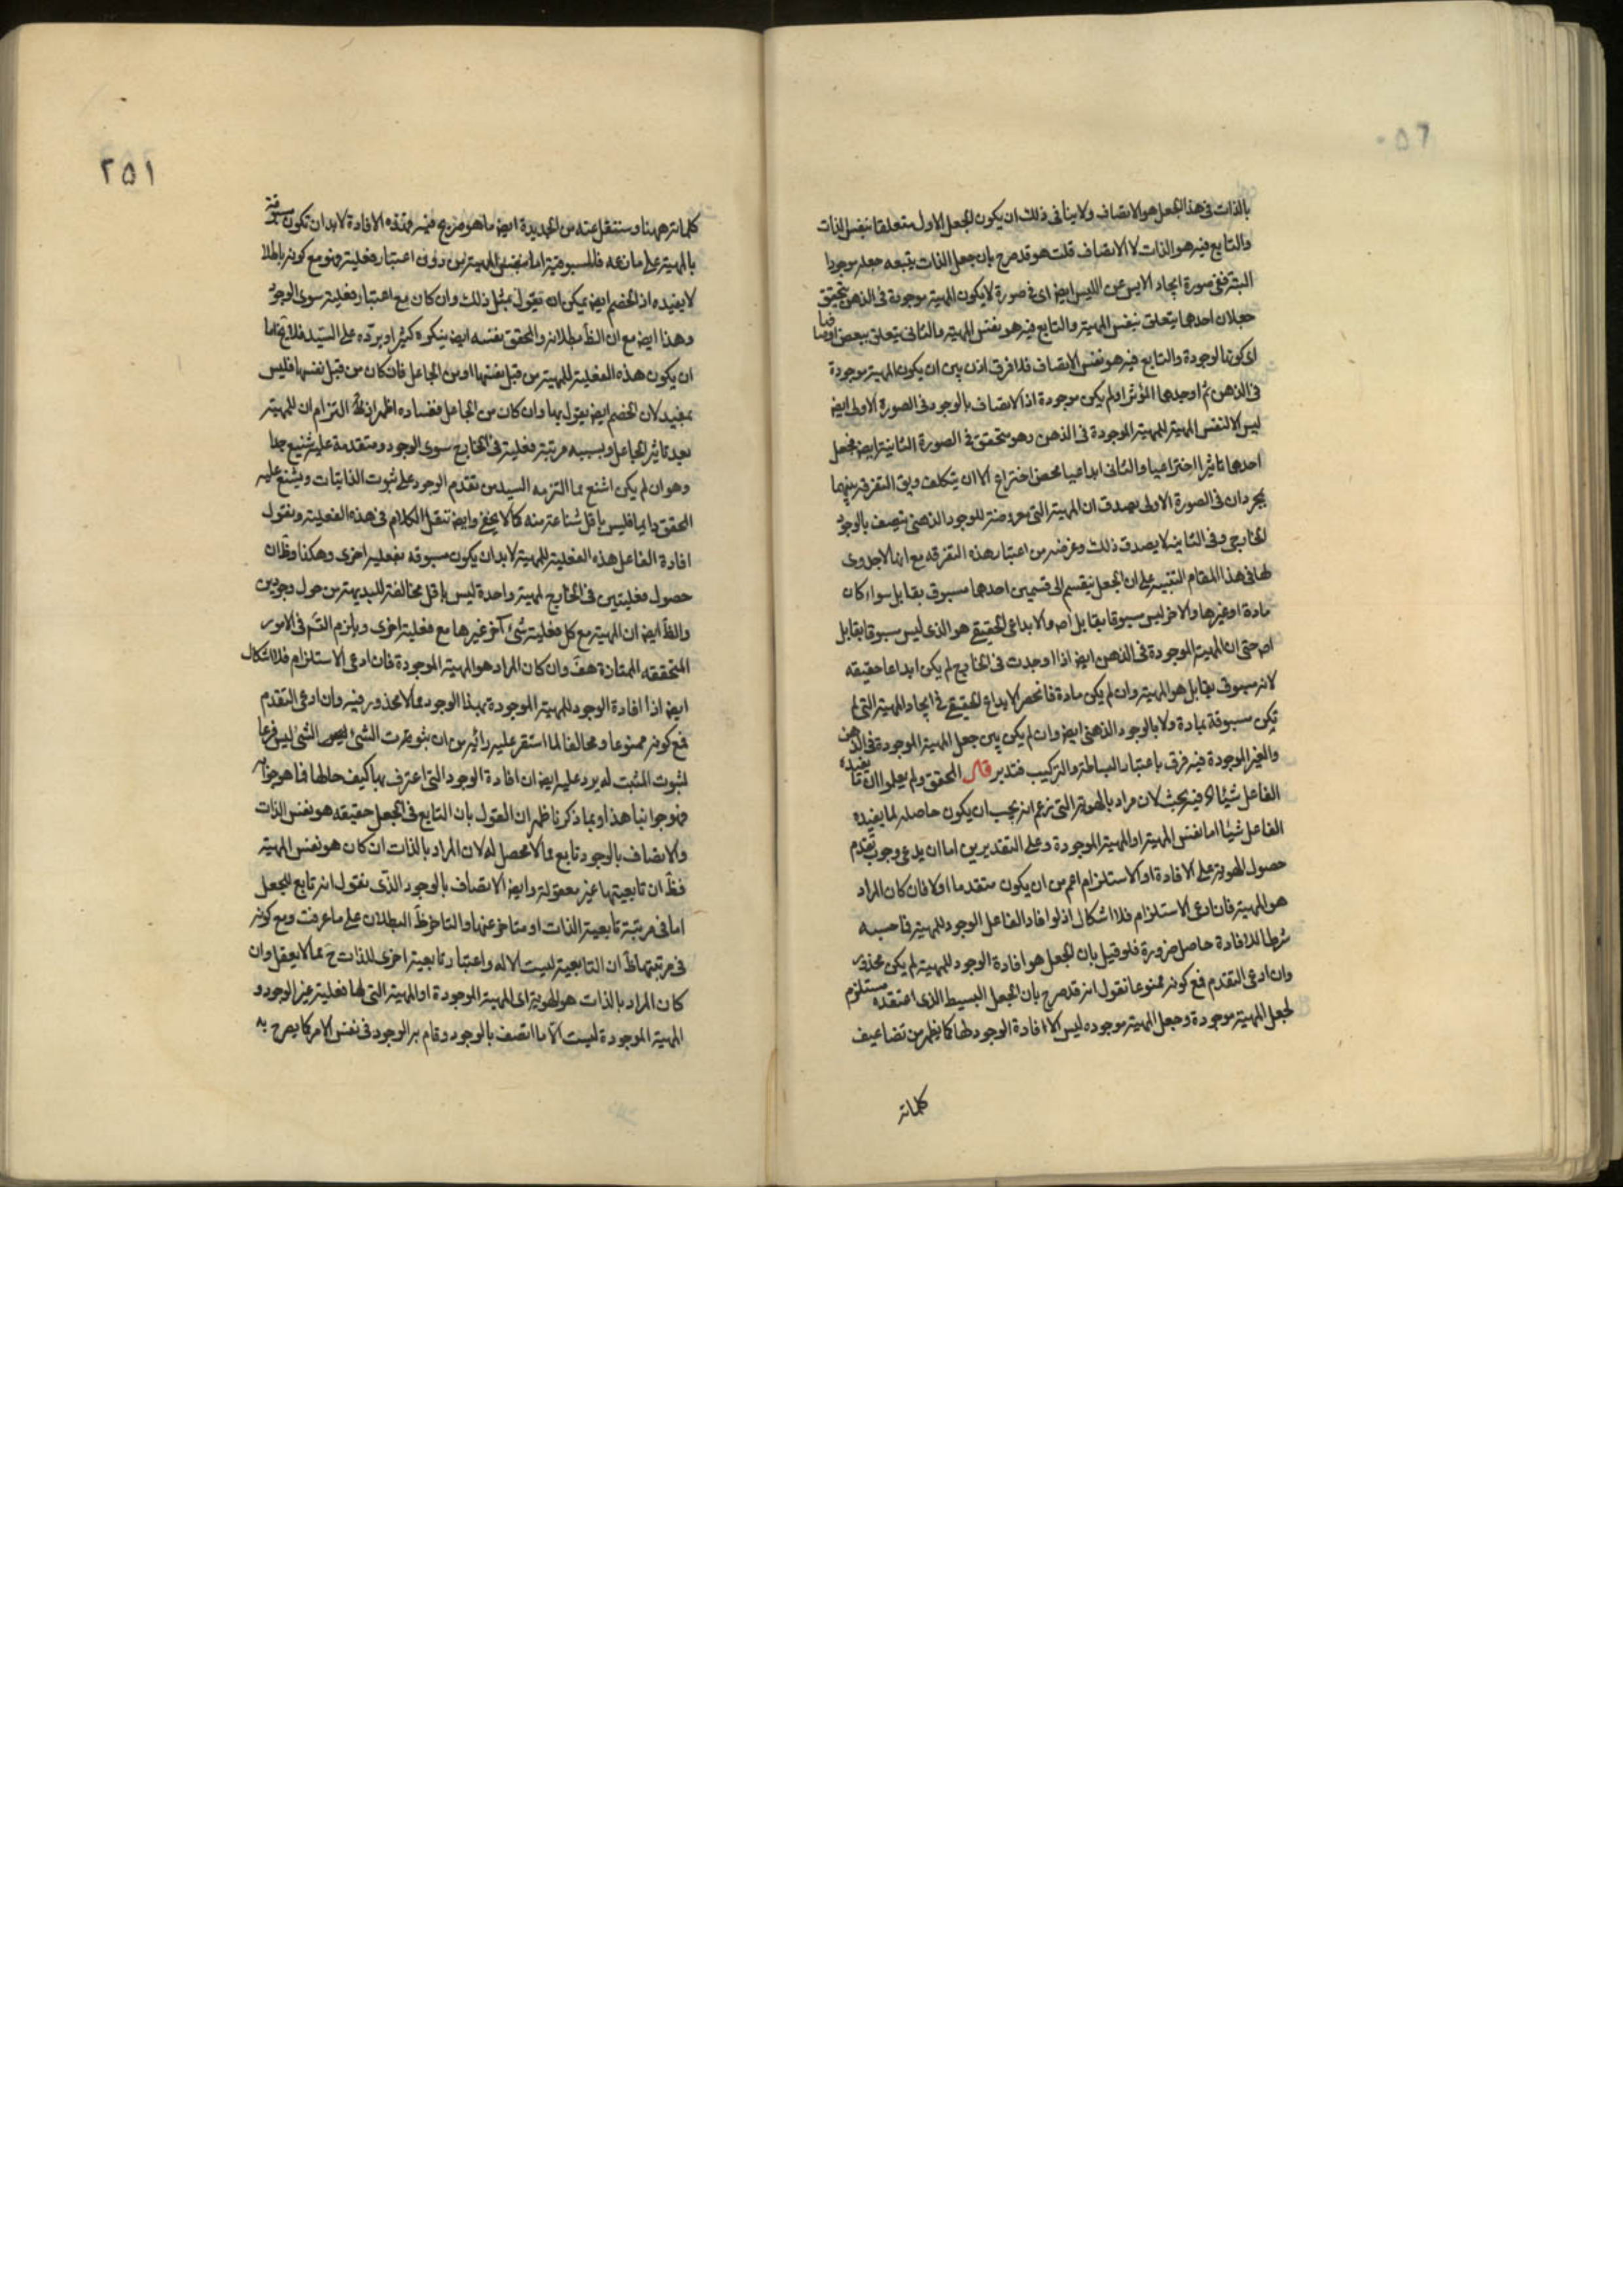 بالذات فى هذا الجعل هو الاتصاف ولا ينافى ذلك ان يكون الجعل الاول متعلقا بنفس الذات
والتابع فيه هو الذات لا الاتصاف قلت هو قد صرح بان جعل الذات يتبعه جعله موجودا
البتة ففى صورة ايجاد الايس عن الليس ايض اى فى صورة لا يكون المهية موجودة فى الذهن يتحقق
جعلان احدهما يتعلق بنفس المهية والتابع فيه هو نفس المهية والثانى يتعلق ببعض اوصافها
اى كونها موجودة والتابع فيه هو نفس الاتصاف فلا فرق اذن بين ان يكون المهية موجودة
فى الذهن ثم اوجدها المؤثر او لم يكن موجودة اذ الاتصاف بالوجود فى الصورة الاولى ايض
ليس الا لنفس المهية لا للمهية الموجودة فى الذهن وهو متحقق فى الصورة الثانية ايض فجعل
احدهما تاثيرا اختراعيا والثانى ابداعيا محض اختراع الا ان يتكلف ويق التفرقة بينهما
بمجرد ان فى الصورة الاولى يصدق ان المهية التى معروضة للوجود الذهنى يتصف بالوجود
الخارجى وفى الثانية لا يصدق ذلك وغرضه من اعتبار هذه التفرقه مع انها لا جدوى
لها فى هذا المقام التنبيه على ان الجعل ينقسم الى قسمين احدهما مسبوق بقابل سواء كان
مادة او غيرها والاخر ليس مسبوقا بقابل اصلا والابداعى الحقيقى هو الذى ليس مسبوقا بقابل
اصلا حتى ان المهية الموجودة فى الذهن ايض اذا وجدت فى الخارج لم يكن ابداعا حقيقه
لانه مسبوق بقابل هو المهية وان لم يكن مادة فانحصر الابداع الحقيقى فى ايجاد المهية التى لم
تكن مسبوقة بمادة ولا بالوجود الذهنى ايض وان لم يكن بين جعل المهية الموجودة فى الذهن
والغير الموجودة فيه فرق باعتبار البساطة والتركيب فتدبر قال المحقق ولم يعلموا ان ما يفيده
الفاعل شيئا اه فيه بحث لان مراده بالهوية التى زعم انه يجب ان يكون حاصله لما يفيده
الفاعل شيئا اما نفس المهية او المهية الموجودة وعلى التقديرين اما ان يدعى وجوب تقدم
حصول الهوية على الافادة او الاستلزام اعم من ان يكون متقدما او لا فان كان المراد
هو المهية فان ادعى الاستلزام فلا اشكال اذ لو افاد الفاعل الوجود للمهية فما حسبه
شرطا للافادة حاصل ضرورة فلو قيل بان الجعل هو افادة الوجود للمهية لم يكن محذور
وان ادعى التقدم فمع كونه ممنوعا نقول انه قد صرح بان الجعل البسيط الذى اعتقده مستلزم
لجعل المهية موجودة وجعل المهية موجوده ليس الا افادة الوجود لها كما يظهر من تضاعيف
كلماته
٢٥١
كلماته ههنا وسننقل عنه من الجديدة ايض ما هو صريح فيه فهذه الافادة لا بد ان تكون مسبوقة
بالمهية على ما زعمه فالمسبوقية اما بنفس المهية من دون اعتبار فعلية فهو مع كونه باطلا
لا يفيده اذ الخصم ايض يمكن ان يقول بمثل ذلك وان كان مع اعتبار فعلية سوى الوجود
وهذا ايض مع ان الظ بطلانه والمحقق نفسه ايض ينكره كثيرا ويرده على السيد فلا يخ اما
ان يكون هذه الفعلية للمهية من قبل نفسها او من الجاعل فان كان من قبل نفسها فليس
بمفيد لان الخصم ايض يقول بها وان كان من الجاعل ففساده اظهر اذ التزام ان للمهية
بعد تاثير الجاعل وبسببه مرتبة فعلية فى الخارج سوى الوجود ومتقدمة عليه شنيع جدا
وهو ان لم يكن اشنع مما التزمه السيد من تقدم الوجود على ثبوت الذاتيات ويشنع عليه
المحقق دايما فليس باقل شناعة منه كما لا يخفى وايض ننقل الكلام فى هذه الفعلية ونقول
افادة الفاعل هذه الفعلية للمهية لا بد ان يكون مسبوقه بفعلية اخرى وهكذا وظ ان
حصول فعليتين فى الخارج لمهية واحدة ليس باقل مخالفة للبديهة من حصول وجودين
والظ ايض ان المهية مع كل فعلية شئ آخر غيرها مع فعلية اخرى ويلزم التس فى الامور
المتحققه الممتازة هف وان كان المراد هو المهية الموجودة فان ادعى الاستلزام فلا اشكال
ايض اذ افادة الوجود للمهية الموجودة بهذا الوجود مما لا محذور فيه وان ادعى التقدم
فمع كونه ممنوعا ومخالفا لما استقر عليه رائه من ان ثبوت الشئ للشئ ليس فرعا
لثبوت المثبت له يرد عليه ايض ان افادة الوجود التى اعترف بها كيف حالها فما هو جوابه
فهو جوابنا هذا وبما ذكرنا ظهر ان القول بان التابع فى الجعل حقيقه هو نفس الذات
والاتصاف بالوجود تابع مما لا محصل له لان المراد بالذات ان كان هو نفس المهية
فظ ان تابعيتها غير معقولة وايض الاتصاف بالوجود الذى نقول انه تابع للجعل
اما فى مرتبة تابعية الذات او متاخر عنها والتاخر ظ البطلان على ما عرفت ومع كونه
فى مرتبتها ظ ان التابعية ليست الا له واعتبار تابعية اخرى للذات ح مما لا يعقل وان
كان المراد بالذات هو الهوية اى المهية الموجودة او المهية التى لها فعلية غير الوجود و
المهية الموجودة ليست الا ما اتصف بالوجود وقام به الوجود فى نفس الامر كما يصرح به